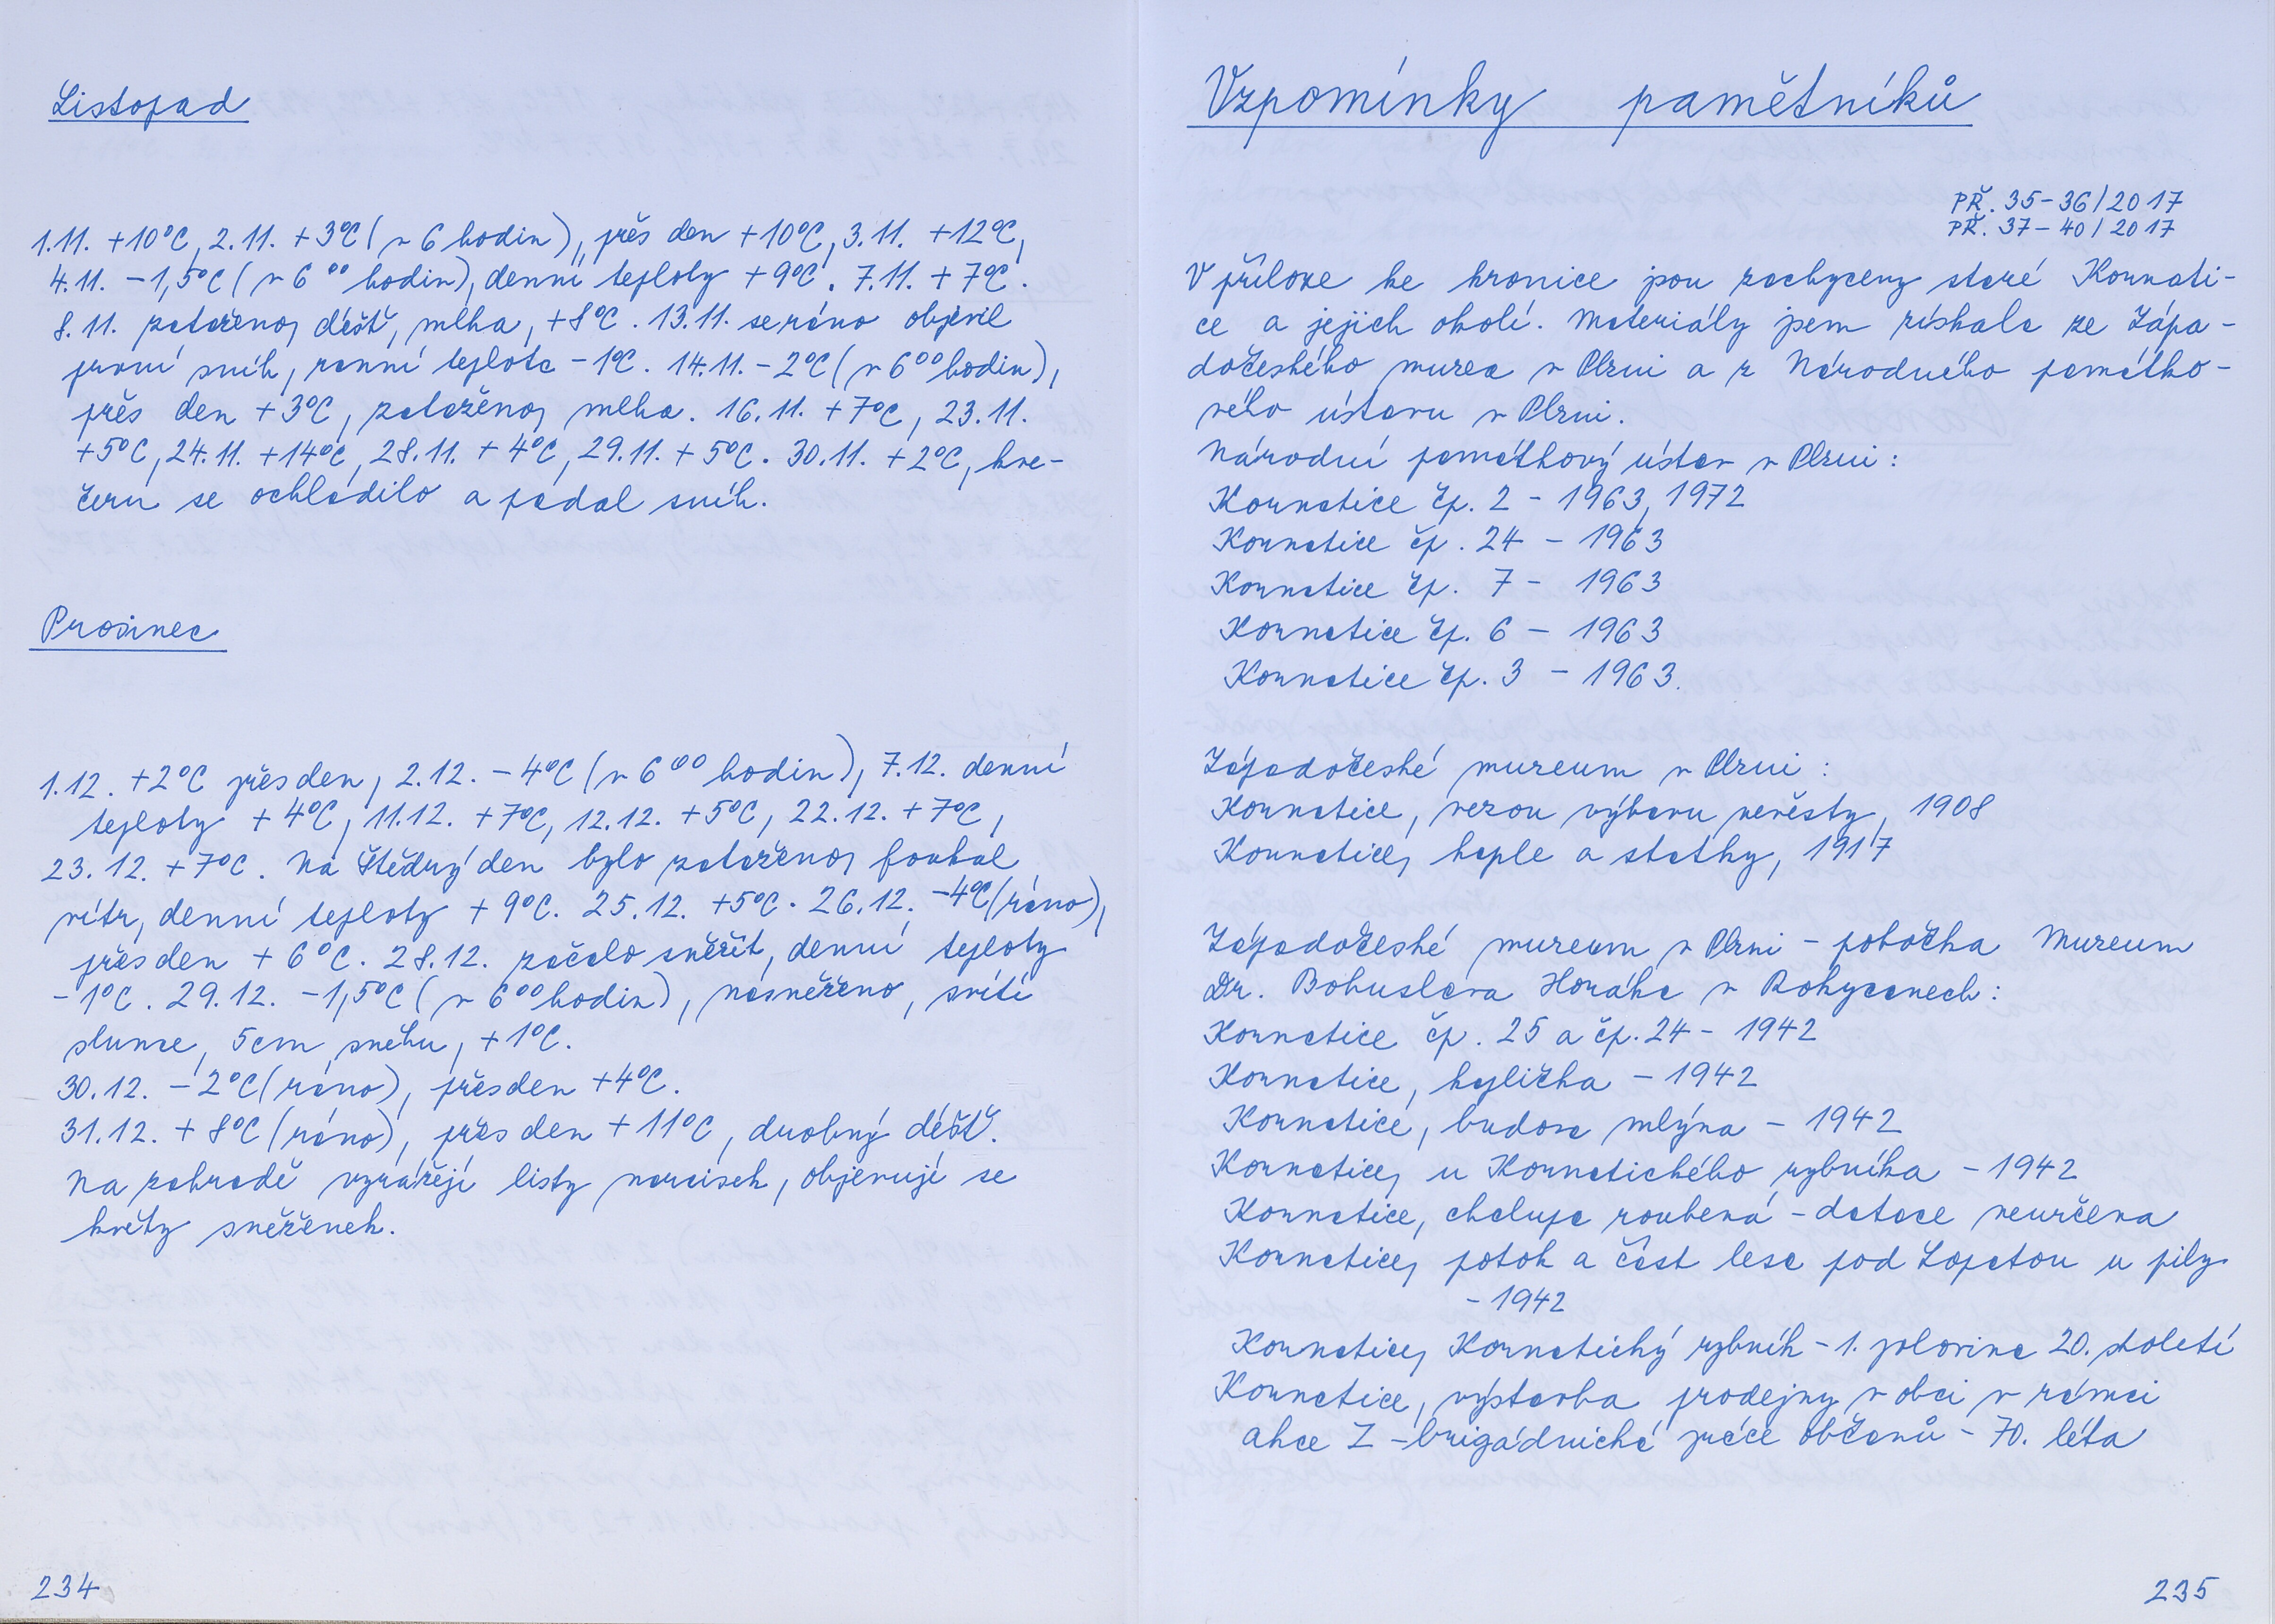 Listopad
1.11. +10°C, 2.11. +3°C (v 6 hodin), přes den +10°C, 3.11. +12°C,
4.11. -1,5°C (v 6⁰⁰ hodin), denní teploty +9°C. 7.11. +7°C.
8.11. zataženo, déšť, mlha, +8°C. 13.11. se ráno objevil
první sníh, ranní teplota -1°C. 14.11. -2°C (v 6⁰⁰ hodin),
přes den +3°C, zataženo, mlha. 16.11. +7°C, 23.11.
+5°C, 24.11. +14°C, 28.11. +4°C, 29.11. +5°C. 30.11. +2°C, kve-
čeru se ochladilo a padal sníh.
Prosinec
1.12. +2°C přes den, 2.12. -4°C (v 6⁰⁰ hodin), 7.12. denní
teploty +4°C, 11.12. +7°C, 12.12. +5°C, 22.12. +7°C,
23.12. +7°C. Na Štědrý den bylo zataženo, foukal
vítr, denní teploty +9°C. 25.12. +5°C. 26.12. -4°C (ráno),
přes den +6°C. 28.12. začalo sněžit, denní teploty
-1°C. 29.12. -1,5°C (v 6⁰⁰ hodin), nasněženo, svítí
slunce, 5cm sněhu, +1°C.
30.12. -2°C (ráno), přes den +4°C.
31.12. +8°C (ráno), přes den +11°C, drobný déšť.
Na zahradě vyrážejí listy narcisek, objevují se
květy sněženek.
234
Vzpomínky pamětníků
PŘ. 35-36/2017
PŘ. 37-40/2017
V příloze ke kronice jsou zachyceny staré Kornati-
ce a jejich okolí. Materiály jsem získala ze Zápa-
dočeského muzea v Plzni a z Národního památko-
vého ústavu v Plzni.
Národní památkový ústav v Plzni:
Kornatice čp. 2 - 1963, 1972
Kornatice čp. 24 - 1963
Kornatice čp. 7 - 1963
Kornatice čp. 6 - 1963
Kornatice čp. 3 - 1963.
Západočeské muzeum v Plzni:
Kornatice, vezou výbavu nevěsty, 1908
Kornatice, kaple a statky, 1917
Západočeské muzeum v Plzni - pobočka Muzeum
Dr. Bohuslava Horáka v Rokycanech:
Kornatice čp. 25 a čp. 24 - 1942
Kornatice, kaplička - 1942
Kornatice, budova mlýna - 1942
Kornatice, u Kornatického rybníka - 1942
Kornatice, chalupa roubená - datace neurčena
Kornatice, potok a část lesa pod Lopatou u pily
- 1942
Kornatice, Kornatický rybník - 1. polovina 20. století
Kornatice, výstavba prodejny v obci v rámci
akce Z - brigádnické práce občanů - 70. léta
235